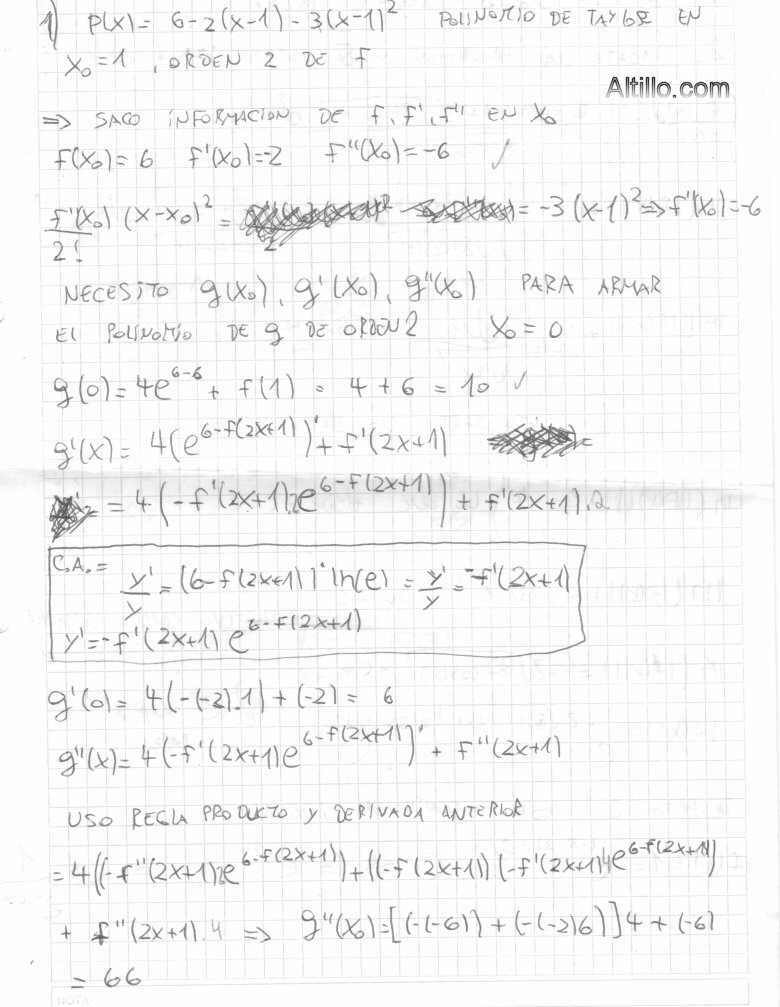 1) P(x) = 6-2(x-1) - 3(x-1)² POLINOMIO DE TAYLOR EN
x₀=1, ORDEN 2 DE f
Altillo.com
⇒ SACO INFORMACION DE f, f', f'' EN x₀
f(x₀) = 6 f'(x₀)=-2 f''(x₀)=-6 ✓
f''(x₀)/2! (x-x₀)² = = -3(x-1)² ⇒ f''(x₀)=-6
NECESITO g(x₀), g'(x₀), g''(x₀) PARA ARMAR
EL POLINOMIO DE g DE ORDEN 2 x₀ = 0
g(0) = 4e^(6-6) + f(1) = 4 + 6 = 10 ✓
g'(x) = 4(e^(6-f(2x+1)))' + f'(2x+1)
= 4(-f'(2x+1)2e^(6-f(2x+1))) + f'(2x+1).2
C.A. = y'/y = (6-f(2x+1))' ln(e) = y'/y = -f'(2x+1)
y' = -f'(2x+1) e^(6-f(2x+1))
g'(0) = 4(-(-2).1) + (-2) = 6
g''(x) = 4(-f'(2x+1)e^(6-f(2x+1)))' + f''(2x+1)
USO REGLA PRODUCTO Y DERIVADA ANTERIOR
= 4((-f''(2x+1)2e^(6-f(2x+1))) + ((-f'(2x+1))(-f'(2x+1)4e^(6-f(2x+1)))
+ f''(2x+1).4 ⇒ g''(x₀) = [(-(-6)) + (-(-2)6)]4 + (-6)
= 66